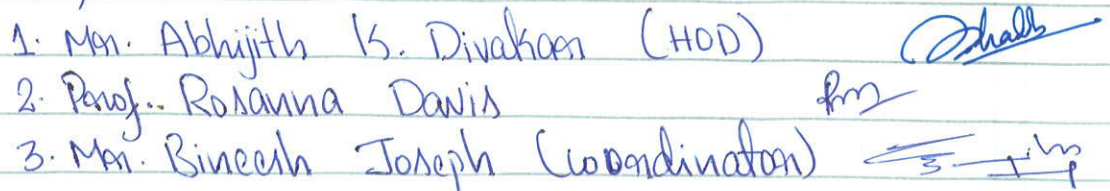 1. Mr. Abhijith K. Divakaran (HOD)
2. Prof. Rosanna Davis
3. Mr. Bineesh Joseph (Coordinator)